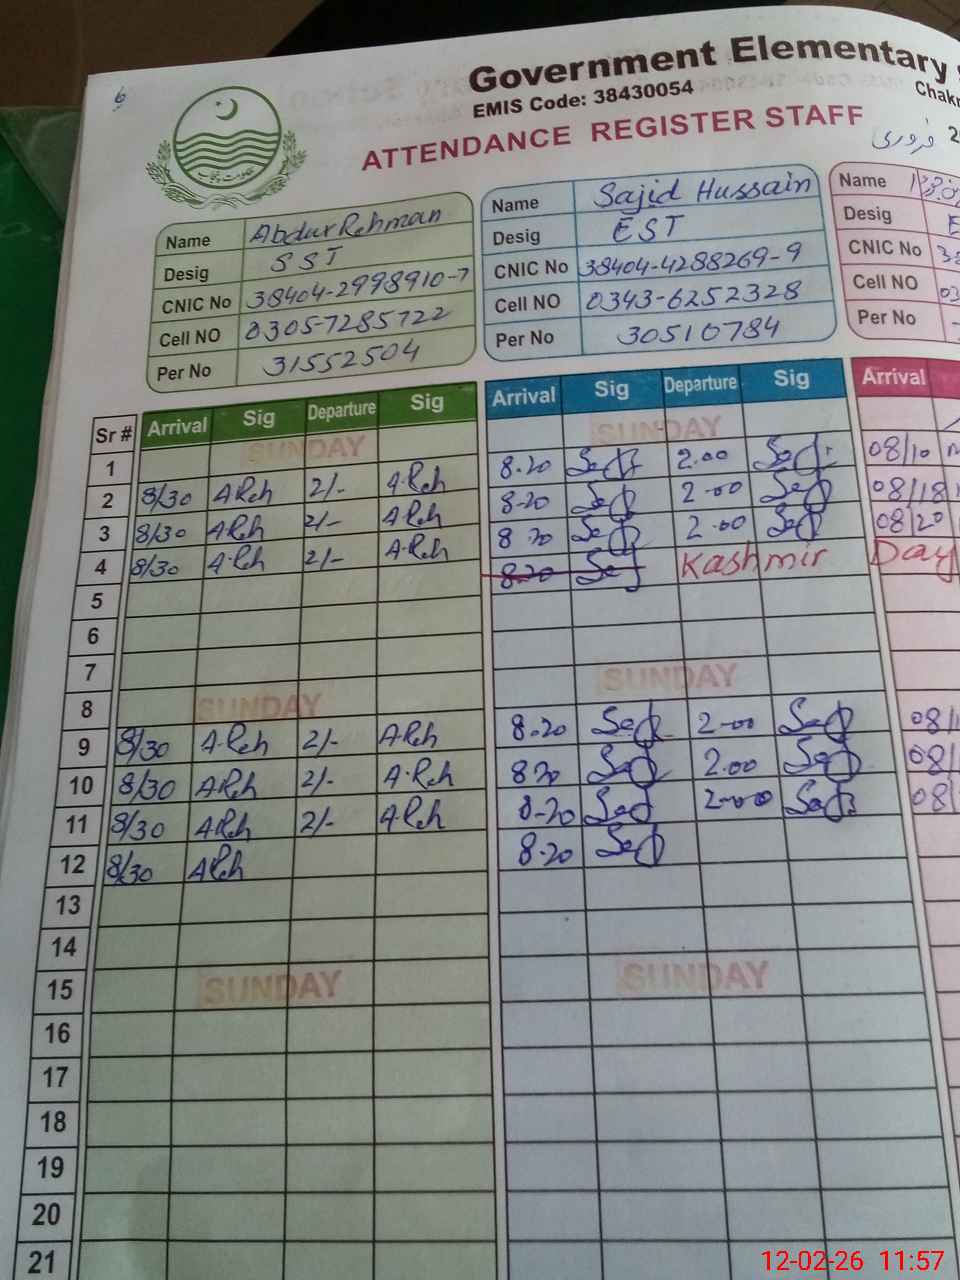 Government Elementary
EMIS Code: 38430054
Chakr
ATTENDANCE REGISTER STAFF
فروری 2
حکومت پنجاب
Name Abdur Rehman
Desig SST
CNIC No 38404-2998910-7
Cell NO 0305-7285722
Per No 31552504
Name Sajid Hussain
Desig EST
CNIC No 38404-4288269-9
Cell NO 0343-6252328
Per No 30510784
Name
Desig E
CNIC No 38
Cell NO 03
Per No
Sr # Arrival Sig Departure Sig Arrival Sig Departure Sig Arrival
1 SUNDAY SUNDAY
2 8/30 AReh 2/- A.Reh 8.20 2.00 08/10
3 8/30 A.Reh 2/- A.Reh 8.20 2.00 08/18
4 8/30 A.Reh 2/- A.Reh 8.20 2.00 08/20
5 8.20 Kashmir Day
6
7
8 SUNDAY SUNDAY
9 8/30 A.Reh 2/- A.Reh 8.20 2.00 08/
10 8/30 AReh 2/- A.Reh 8.20 2.00 08/
11 8/30 AReh 2/- A.Reh 8.20 2.00 08/
12 8/30 AReh 8.20
13
14
15 SUNDAY SUNDAY
16
17
18
19
20
21
12-02-26 11:57